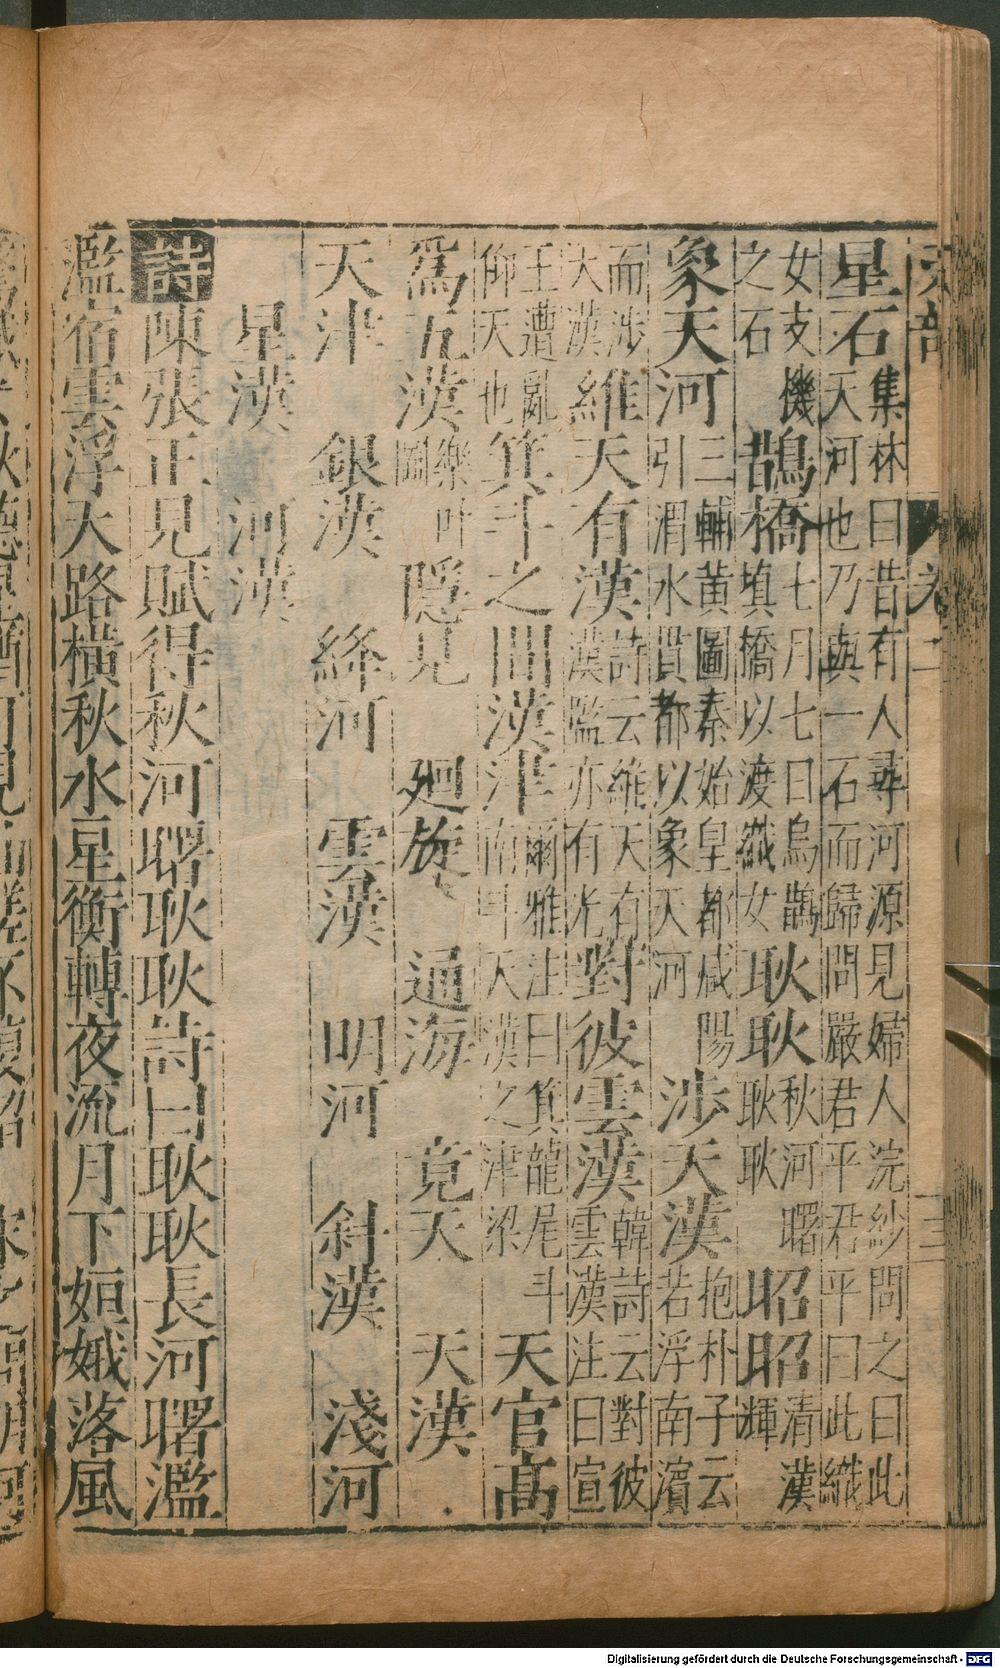 天部 卷二 三
星石集林曰昔有人尋河源見婦人浣紗問之曰此天河也乃與一石而歸問嚴君平君平曰此織
女支機之石 鵲橋七月七日烏鵲填橋以渡織女 耿耿秋河曙耿耿 昭昭清漢輝
象天河三輔黄圖秦始皇都咸陽引渭水貫都以象天河 涉天漢抱朴子云若浮南濱
而涉大漢 維天有漢詩云維天有漢漢監亦有光 對彼雲漢韓詩云對彼雲漢注曰宣
王遭亂仰天也 箕斗之間漢津爾雅注曰箕龍尾斗南斗天漢之津梁 天官高
爲五漢樂叶圖 隱見 廻旋 通海 竟天 天漢
天津 銀漢 絳河 雲漢 明河 斜漢 淺河
星漢 河漢
詩 陳張正見賦得秋河曙耿耿詩曰耿耿長河曙濫
濫宿雲浮天路橫秋水星衡轉夜流月下姮娥落風
Digitalisierung gefördert durch die Deutsche Forschungsgemeinschaft - DFG